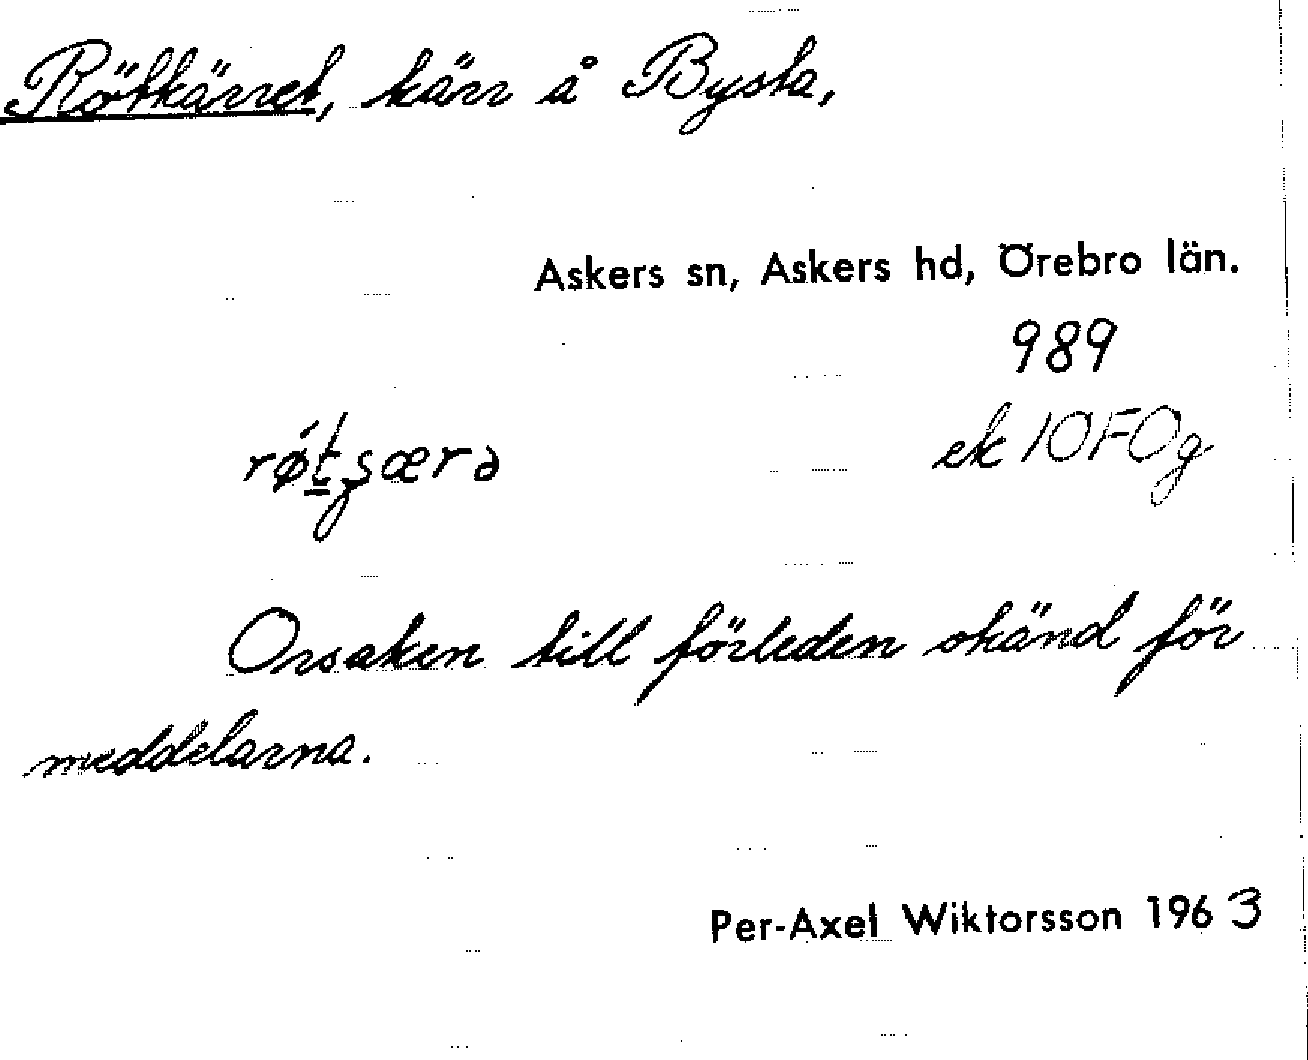 Rötkärret, kärr å Bysta,
Askers sn, Askers hd, Örebro län.
989
ek 10F0g
Orsaken till förleden okänd för
meddelarna.
Per-Axel Wiktorsson 1963